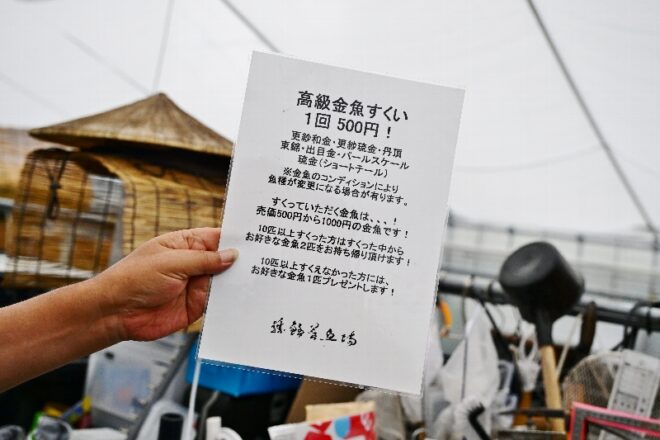 高級金魚すくい
1回 500円！
更紗和金・更紗琉金・丹頂
東錦・出目金・パールスケール
琉金（ショートテール）
※金魚のコンディションにより
魚種が変更になる場合が有ります。
すくっていただく金魚は、、、！
売価500円から1000円の金魚です！
10匹以上すくった方はすくった中から
お好きな金魚2匹をお持ち帰り頂けます！
10匹以上すくえなかった方には、
お好きな金魚1匹プレゼントします！